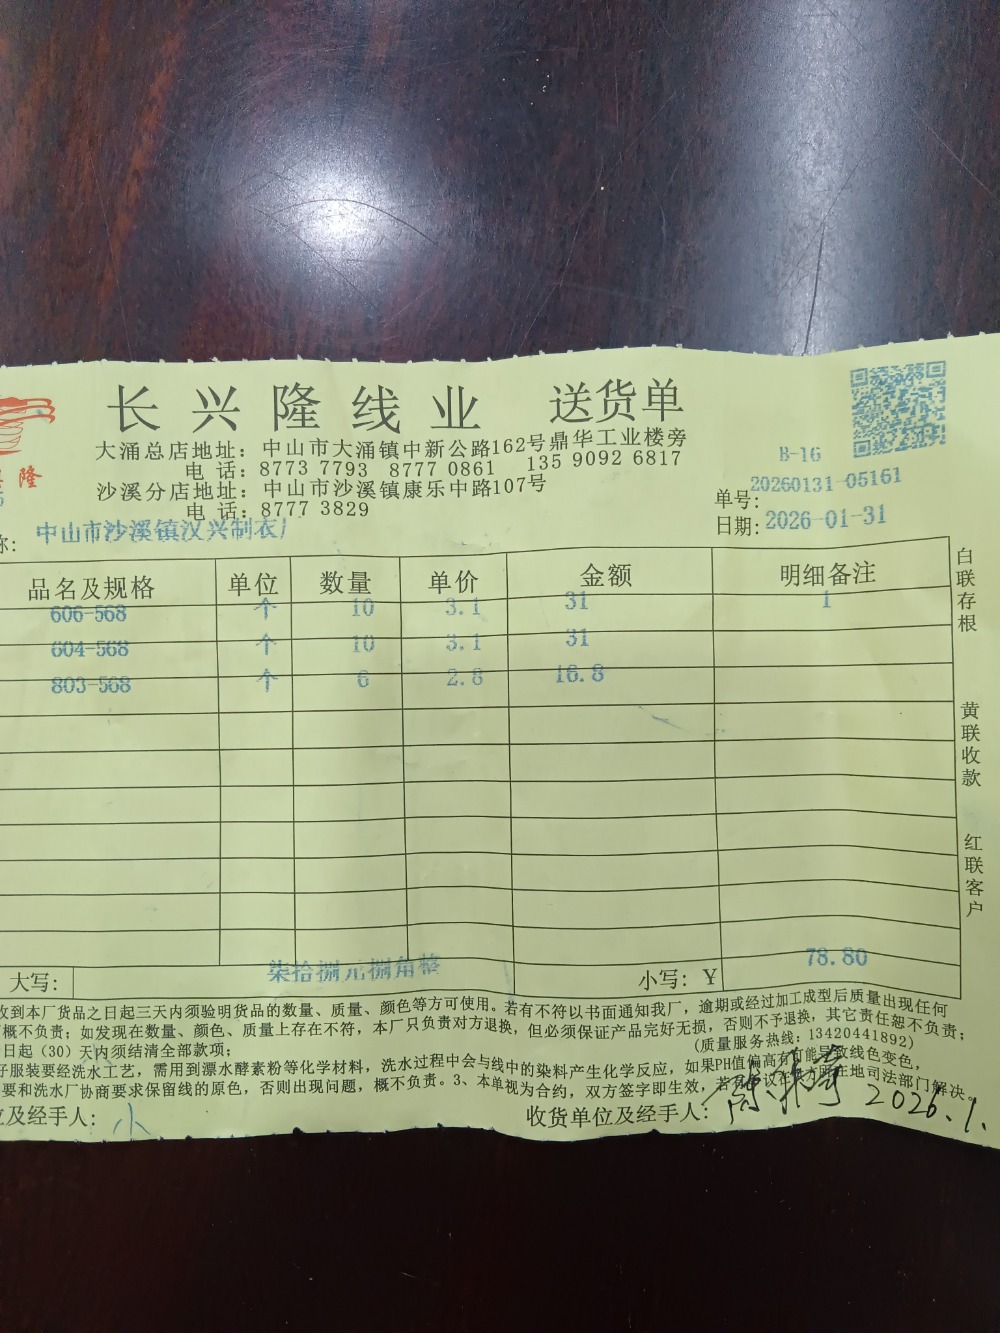 长兴隆线业 送货单
大涌总店地址：中山市大涌镇中新公路162号鼎华工业楼旁
电话：8773 7793 8777 0861 135 9092 6817
沙溪分店地址：中山市沙溪镇康乐中路107号
电话：8777 3829
隆
B-16
单号：20260131-05161
日期：2026-01-31
称：中山市沙溪镇汉兴制衣厂
品名及规格 单位 数量 单价 金额 明细备注
606-568 个 10 3.1 31 1
604-568 个 10 3.1 31
803-568 个 6 2.8 16.8
白联存根
黄联收款
红联客户
大写：柒拾捌元捌角整 小写：Y 78.80
收到本厂货品之日起三天内须验明货品的数量、质量、颜色等方可使用。若有不符以书面通知我厂，逾期或经过加工成型后质量出现任何
概不负责；如发现在数量、颜色、质量上存在不符，本厂只负责对方退换，但必须保证产品完好无损，否则不予退换，其它责任恕不负责；
日起（30）天内须结清全部款项；
(质量服务热线：13420441892)
服装要经洗水工艺，需用到漂水酵素粉等化学材料，洗水过程中会与线中的染料产生化学反应，如果PH值偏高有可能导致线色变色，
要和洗水厂协商要求保留线的原色，否则出现问题，概不负责。3、本单视为合约，双方签字即生效，若有争议在供方所在地司法部门解决。
及经手人：小
收货单位及经手人： 2026.1.